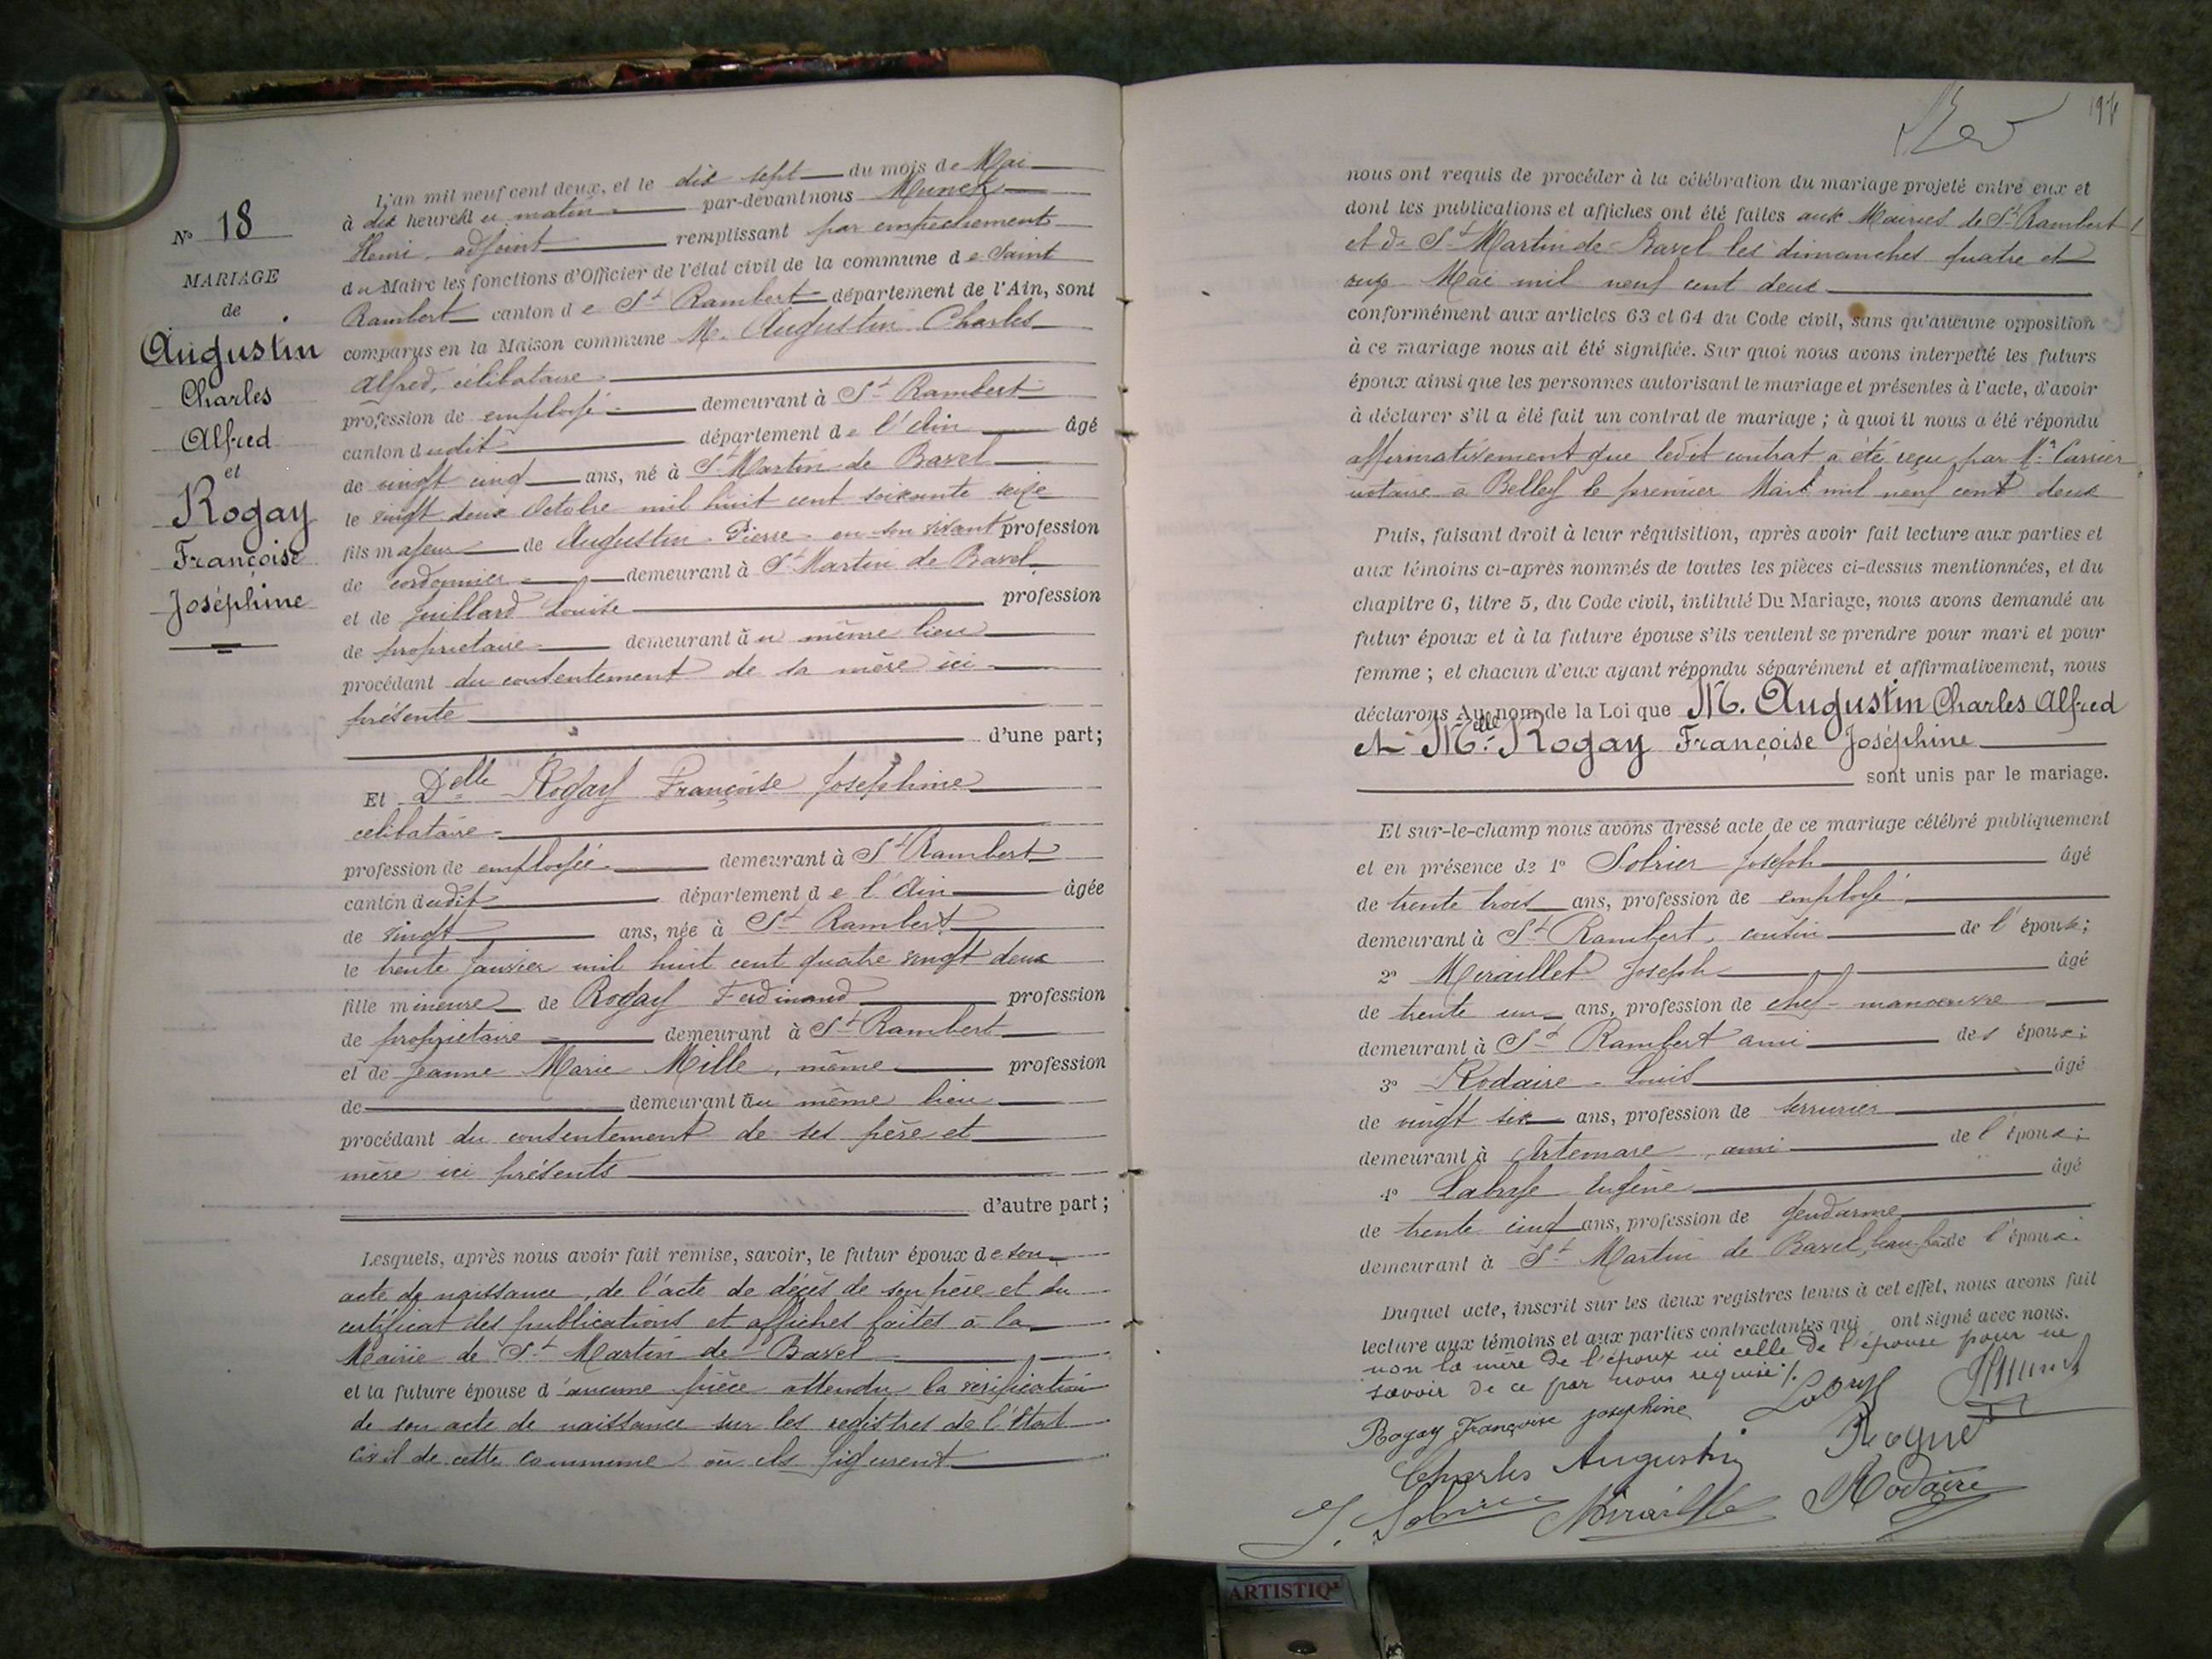 N° 18
MARIAGE
de
Augustin
Charles
Alfred
et
Rogay
Françoise
Joséphine
L'an mil neuf cent deux, et le dix sept du mois de Mai
à dix heures du matin par-devant nous Munet
Henri, adjoint remplissant par empêchement
du Maire les fonctions d'Officier de l'état civil de la commune de Saint
Rambert canton de St Rambert département de l'Ain, sont
comparus en la Maison commune M. Augustin Charles
Alfred, célibataire
profession de employé demeurant à St Rambert
canton dudit département de l'Ain âgé
de vingt cinq ans, né à St Martin de Bavel
le vingt deux Octobre mil huit cent soixante seize
fils majeur de Augustin Pierre en son vivant profession
de cordonnier demeurant à St Martin de Bavel
et de Juillard Louise profession
de propriétaire demeurant au même lieu
procédant du consentement de sa mère ici
présente
d'une part;
Et Delle Rogay Françoise Joséphine
célibataire
profession de employée demeurant à St Rambert
canton dudit département de l'Ain âgée
de vingt ans, née à St Rambert
le trente Janvier mil huit cent quatre vingt deux
fille mineure de Rogay Ferdinand profession
de propriétaire demeurant à St Rambert
et de Jeanne Marie Mille, même profession
de demeurant au même lieu
procédant du consentement de ses père et
mère ici présents
d'autre part;
Lesquels, après nous avoir fait remise, savoir, le futur époux de son
acte de naissance, de l'acte de décès de son père et du
certificat des publications et affiches faites à la
Mairie de St Martin de Bavel
et la future épouse d'aucune pièce attendu la vérification
de son acte de naissance sur les registres de l'état
civil de cette commune où ils figurent
197
nous ont requis de procéder à la célébration du mariage projeté entre eux et
dont les publications et affiches ont été faites aux Mairies de St Rambert
et de St Martin de Bavel les dimanches quatre et
onze Mai mil neuf cent deux
conformément aux articles 63 et 64 du Code civil, sans qu'aucune opposition
à ce mariage nous ait été signifiée. Sur quoi nous avons interpellé les futurs
époux ainsi que les personnes autorisant le mariage et présentes à l'acte, d'avoir
à déclarer s'il a été fait un contrat de mariage; à quoi il nous a été répondu
affirmativement que ledit contrat a été reçu par Me Carrier
notaire à Belley le premier Mai mil neuf cent deux
Puis, faisant droit à leur réquisition, après avoir fait lecture aux parties et
aux témoins ci-après nommés de toutes les pièces ci-dessus mentionnées, et du
chapitre 6, titre 5, du Code civil, intitulé Du Mariage, nous avons demandé au
futur époux et à la future épouse s'ils veulent se prendre pour mari et pour
femme; et chacun d'eux ayant répondu séparément et affirmativement, nous
déclarons Au nom de la Loi que M. Augustin Charles Alfred
et Melle Rogay Françoise Joséphine
sont unis par le mariage.
Et sur-le-champ nous avons dressé acte de ce mariage célébré publiquement
et en présence de 1° Sobrier Joseph âgé
de trente trois ans, profession de employé
demeurant à St Rambert, cousin de l'épouse;
2° Miraillet Joseph âgé
de trente un ans, profession de chef-manoeuvre
demeurant à St Rambert ami des époux;
3° Rodaire Louis âgé
de vingt six ans, profession de serrurier
demeurant à Artemare, ami de l'époux;
4° Eugène âgé
de trente cinq ans, profession de gendarme
demeurant à St Martin de Bavel, beau-frère de l'époux.
Duquel acte, inscrit sur les deux registres tenus à cet effet, nous avons fait
lecture aux témoins et aux parties contractantes qui ont signé avec nous.
non la mère de l'époux ni celle de l'épouse pour ne
savoir de ce par nous requise ./.
Rogay Françoise Josephine
Charles Augustin
J. Sobrier Miraillet Rodaire
ARTISTIQ